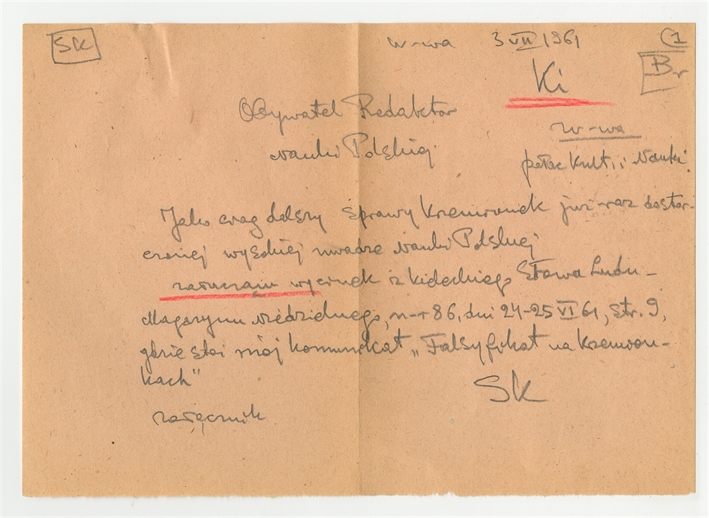 SK
W-wa 3 VII 1961
1
Br
Ki
Obywatel Redaktor
Nauki Polskiej
W-wa
pałac Kult. i Nauki
Jako ciąg dalszy sprawy krzemionek już raz dostar-
czonej wysokiej uwadze Nauki Polskiej
załączam wycinek z kieleckiego Słowa Ludu -
Magazynu niedzielnego, n-r 86, dni 24-25 VI 61, str. 9,
gdzie stoi mój komunikat „Falsyfikat na krzemion-
kach"
SK
załącznik